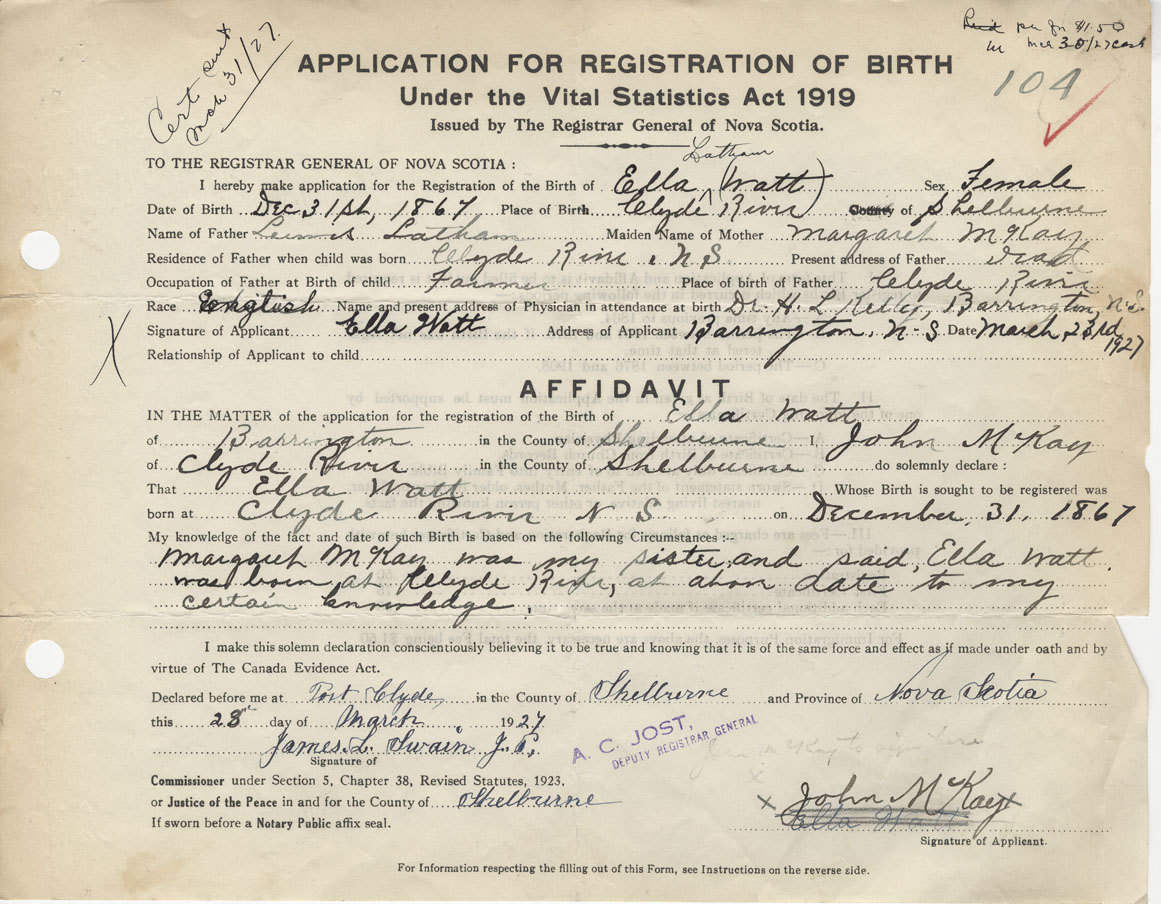 Cert sent
Mch 31/27.
pr $1.50
104
APPLICATION FOR REGISTRATION OF BIRTH
Under the Vital Statistics Act 1919
Issued by The Registrar General of Nova Scotia.
TO THE REGISTRAR GENERAL OF NOVA SCOTIA :
Latham
I hereby make application for the Registration of the Birth of Ella (Watt) Sex Female
Date of Birth Dec 31st, 1867 Place of Birth Clyde River County of Shelburne
Name of Father Lewis Latham Maiden Name of Mother Margaret McKay
Residence of Father when child was born Clyde River, N S. Present address of Father Dead
Occupation of Father at Birth of child Farmer Place of birth of Father Clyde River
Race English Name and present address of Physician in attendance at birth Dr. H. L. Kelly, Barrington, N.S.
Signature of Applicant Ella Watt Address of Applicant Barrington, N-S Date March 23rd 1927
Relationship of Applicant to child
AFFIDAVIT
IN THE MATTER of the application for the registration of the Birth of Ella Watt
of Barrington in the County of Shelburne I, John McKay
of Clyde River in the County of Shelburne do solemnly declare :
That Ella Watt Whose Birth is sought to be registered was
born at Clyde River N S. on December, 31, 1867
My knowledge of the fact and date of such Birth is based on the following Circumstances :-
Margaret McKay was my sister, and said, Ella Watt.
was born at Clyde River, at above date to my
certain knowledge.
I make this solemn declaration conscientiously believing it to be true and knowing that it is of the same force and effect as if made under oath and by
virtue of The Canada Evidence Act.
Declared before me at Port Clyde in the County of Shelburne and Province of Nova Scotia
this 28th day of March 1927
James. L. Swain J. P.
Signature of
A. C. JOST,
DEPUTY REGISTRAR GENERAL
John McKay to sign here
Commissioner under Section 5, Chapter 38, Revised Statutes, 1923,
or Justice of the Peace in and for the County of Shelburne
If sworn before a Notary Public affix seal.
x John McKay x
Ella Watt
Signature of Applicant.
For Information respecting the filling out of this Form, see Instructions on the reverse side.